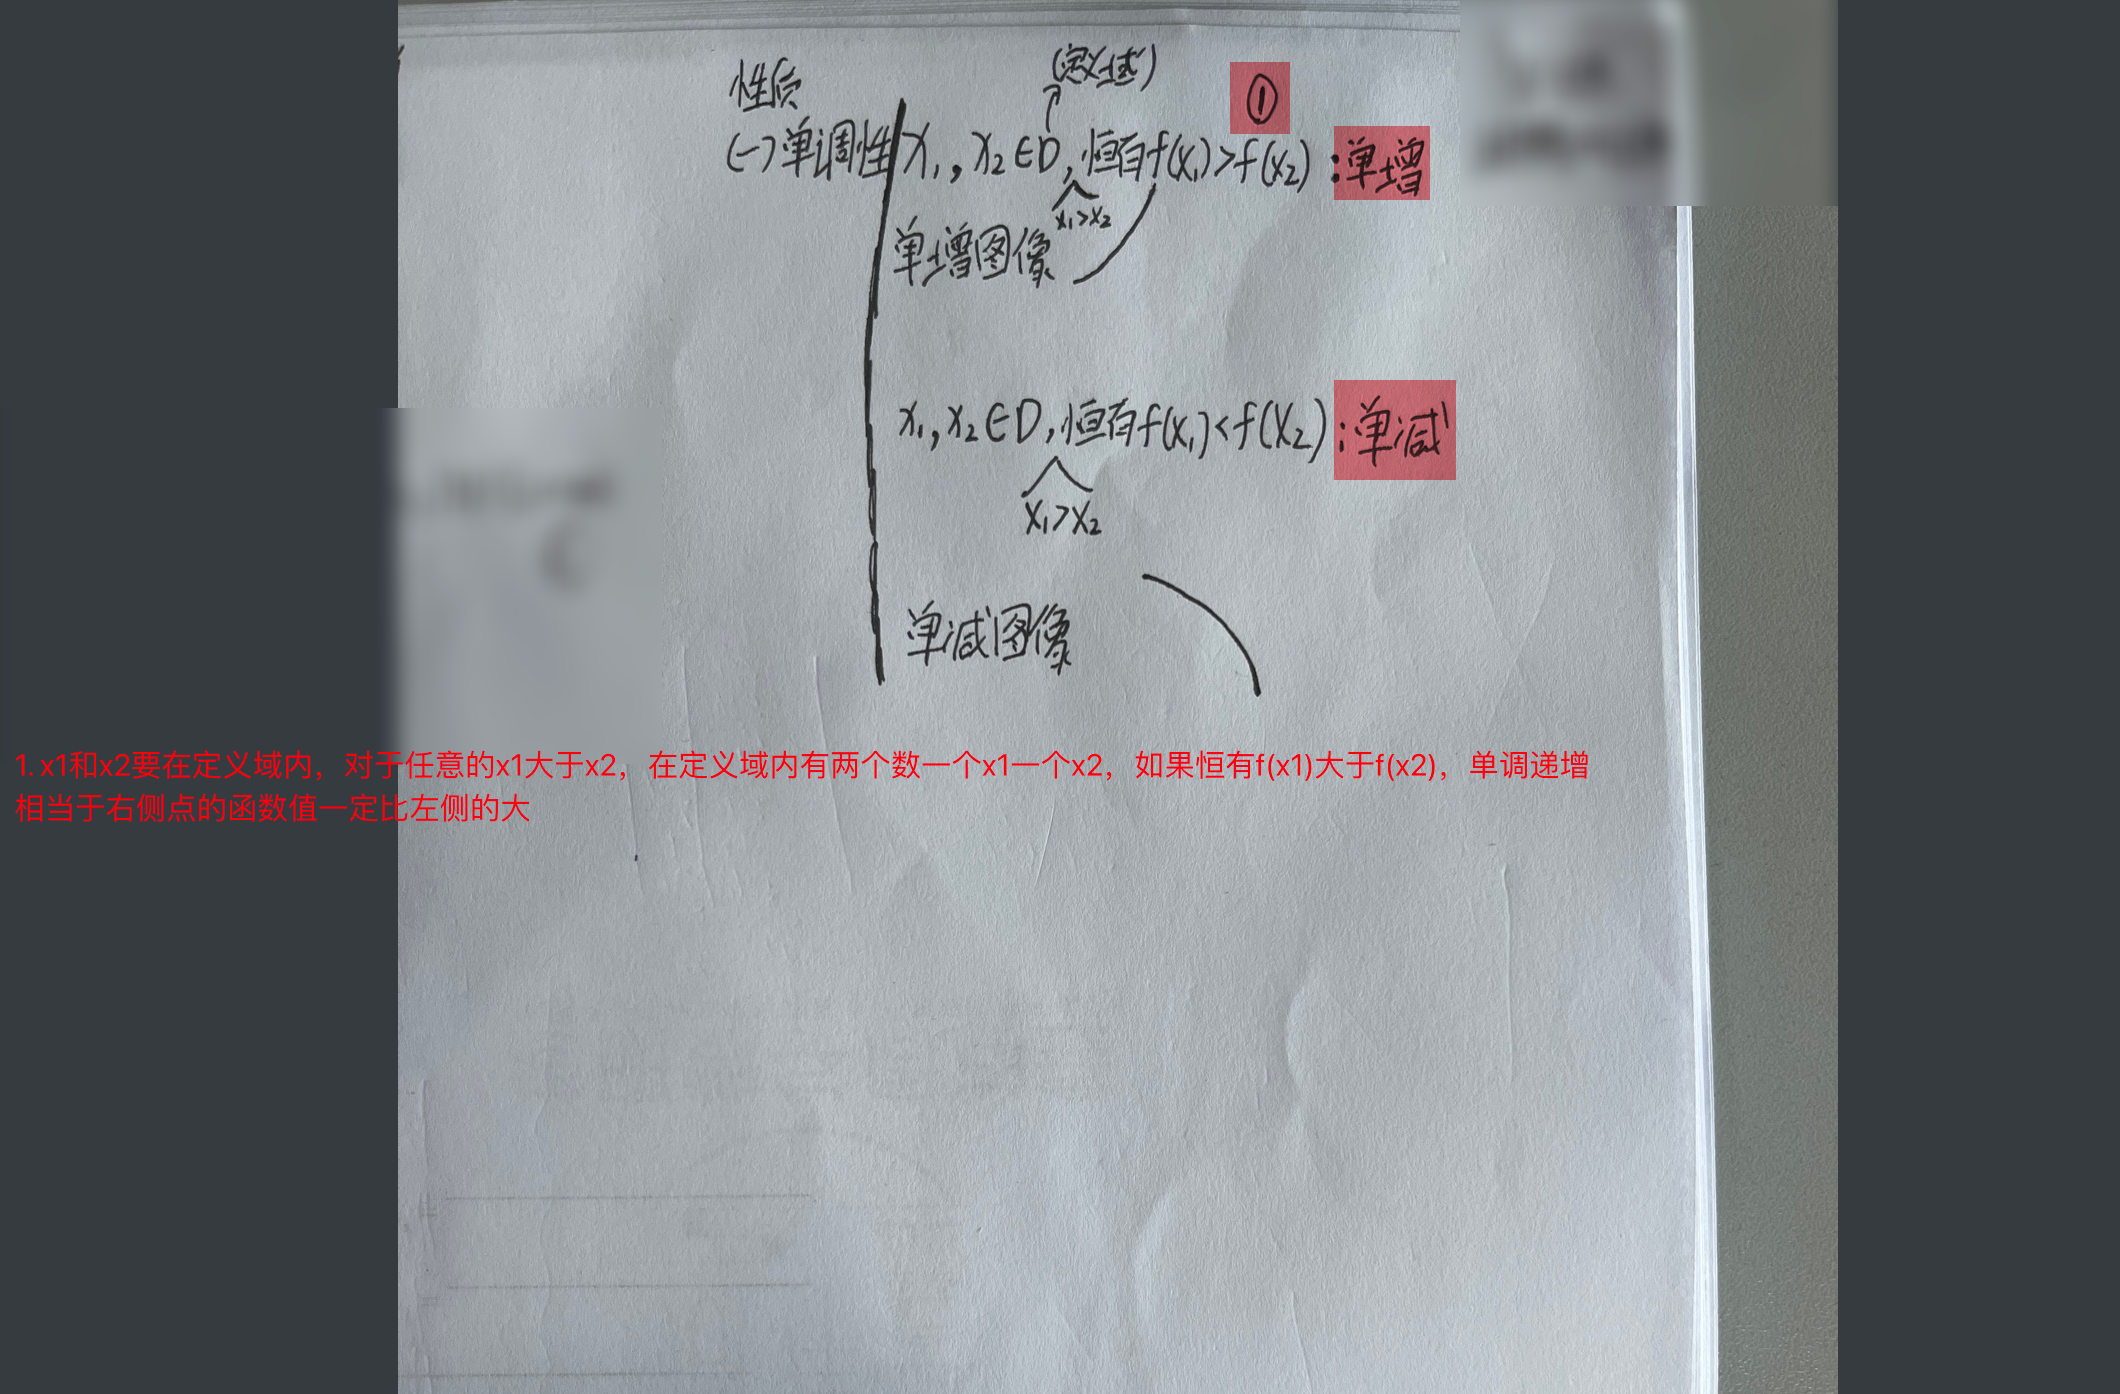 (定义域)
性质
①
(一)单调性 x₁,x₂∈D,恒有f(x₁)>f(x₂):单增
x₁>x₂
单增图像
x₁,x₂∈D,恒有f(x₁)<f(x₂):单减
x₁>x₂
单减图像
1. x1和x2要在定义域内，对于任意的x1大于x2，在定义域内有两个数一个x1一个x2，如果恒有f(x1)大于f(x2)，单调递增
相当于右侧点的函数值一定比左侧的大